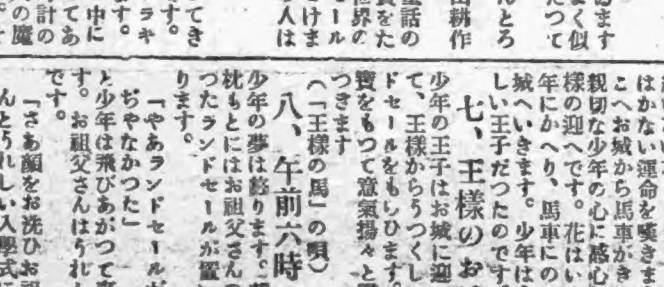 ゐます
く似
だつて
んとろ
田耕作
童話の
をた
世界の
ール
けま
人は
てき
す。
ラキ
ます。
中に
てあ
計の
の魔
はかない運命を嘆きま
こへお城から馬車がき
親切な少年の心に感心
様の迎へです。花はい
年にかへり、馬車にの
城へいきます。少年は
しい王子だつたのです。
七、王様のお
少年の王子はお城に迎
て、王様からうつくし
ドセールをもらひます。
寶をもつて意氣揚々と
つきます
(「王様の馬」の唄)
八、午前六時
少年の夢は終ります。
枕もとにはお祖父さんの
つたランドセールが置
ります。
「やあランドセールが
ぢやなかつた」
と少年は飛びあがつて
す。お祖父さんはうれし
です。
「さあ顔をお洗ひお祖
んとうれしい入學式に